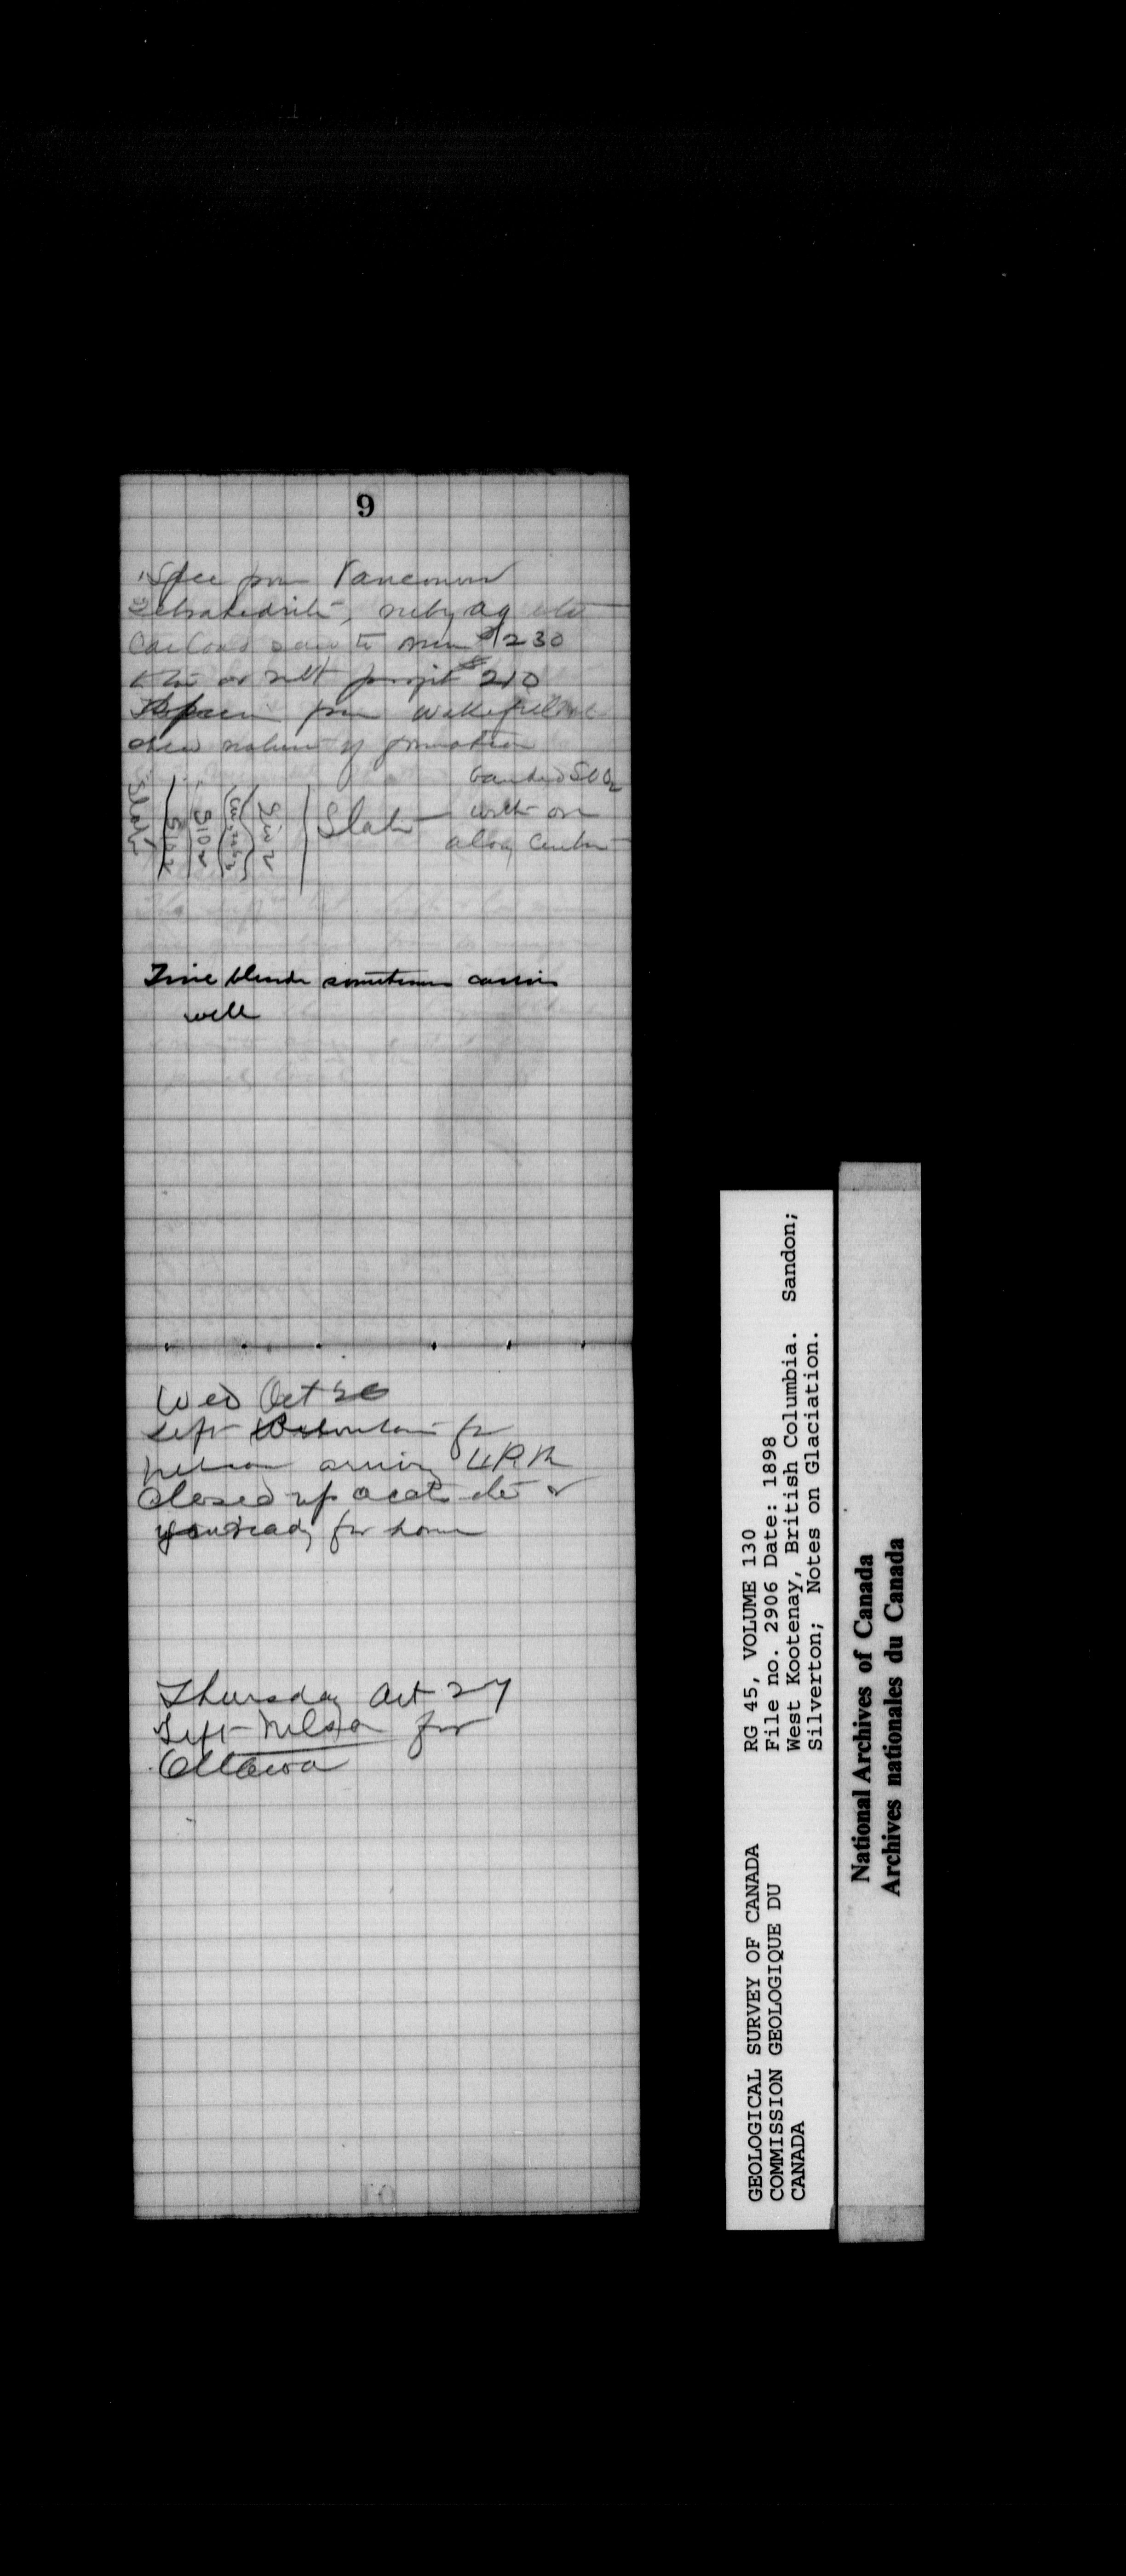 9
Spec from Vancouver
Tetrahedrite, ruby ag etc
Car load said to run $230
or nett profit $210
Specim from Wakefield
shew nature of formation
banded SiO2
with ore
along center
Slate
SiO2
SiO2
SiO2
Slate
Zinc blende sometimes carries
well
Wed Oct 26
Left for
Nelson arriving 4 P.M.
Closed up accts etc &
ready for home
Thursday Oct 27
Left Nelson for
Ottawa
GEOLOGICAL SURVEY OF CANADA
COMMISSION GEOLOGIQUE DU
CANADA
RG 45, VOLUME 130
File no. 2906 Date: 1898
West Kootenay, British Columbia. Sandon;
Silverton; Notes on Glaciation.
National Archives of Canada
Archives nationales du Canada